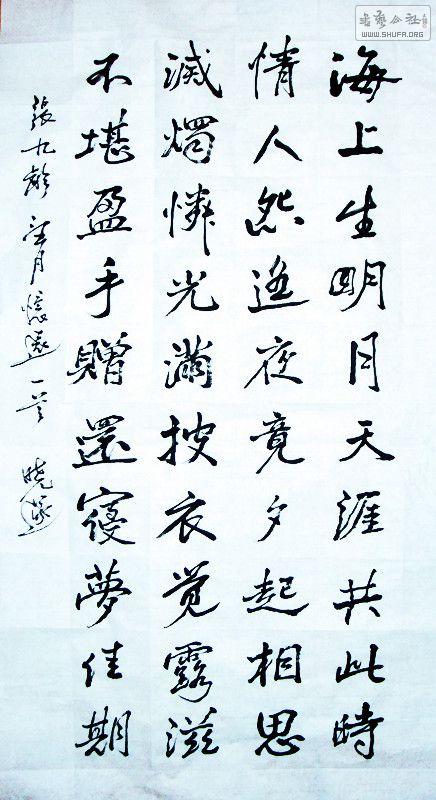 海上生明月天涯共此時
情人怨遙夜竟夕起相思
滅燭憐光滿披衣觉露滋
不堪盈手贈還寢夢佳期
張九齡望月懷遠一首
書藝公社
WWW.SHUFA.ORG